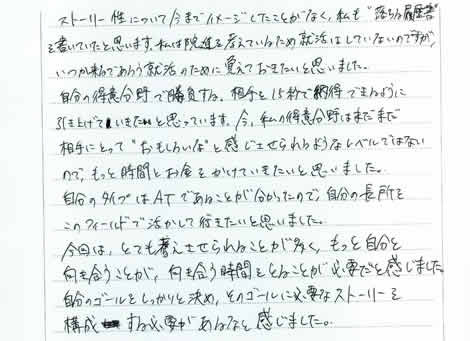 ストーリー性について今までイメージしたことがなく、私も"落ちる履歴書"
を書いていたと思います。私は院進を考えているため就活はしていないのですが、
いつか来るであろう就活のために覚えておきたいと思いました。
自分の得意分野で勝負する。相手を15秒で納得できるように
引き上げていきたいと思っています。今、私の得意分野はまだまだ
相手にとって"おもしろいな"と感じさせられるようなレベルではない
ので、もっと時間とお金をかけていきたいと思いました。
自分のタイプはATであることが分かったので、自分の長所を
このフィールドで活かして行きたいと思いました。
今回は、とても考えさせられることが多く、もっと自分と
向き合うことが、向き合う時間をとることが必要だと感じました。
自分のゴールをしっかりと決め、そのゴールに必要なストーリーを
構成する必要があるなと感じました。